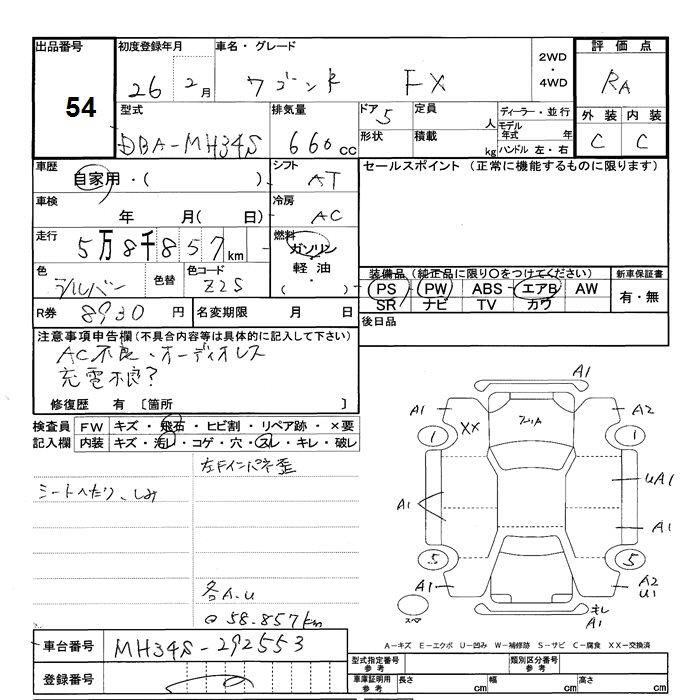 出品番号 初度登録年月 車名・グレード 2WD ・ 4WD 評価点
54 26 2月 ワゴンR FX RA
型式 排気量 ドア 5 定員 人 ディーラー・並行 外装 内装
DBA-MH34S 660cc 形状 積載 kg モデル年式 年 C C
ハンドル 左・右
車歴 自家用・( ) シフト AT セールスポイント (正常に機能するものに限ります)
車検 年 月( 日) 冷房 AC
走行 5万8千857km 燃料 ガソリン・軽油・( )
色 シルバー 色替 色コード Z2S 装備品(純正品に限り○をつけてください) 新車保証書
PS ・ PW ・ ABS ・ エアB ・ AW 有・無
SR ナビ TV カワ
R券 8930 円 名変期限 月 日 後日品
注意事項申告欄(不具合内容等は具体的に記入して下さい)
AC不良・オーディオレス
充電不良?
修復歴 有 〔箇所 〕
検査員記入欄 FW キズ・飛石・ヒビ割・リペア跡・×要
内装 キズ・汚レ・コゲ・穴・スレ・キレ・破レ
左Fインパネ歪
シートへたり、しみ
各A.U
@ 58.857km
A1
A1 XX A2
1 1
A1 UA1
A1
5 5
A1 A2
U1
スペア キレ
A1
A-キズ E-エクボ U-凹み W-補修跡 S-サビ C-腐食 XX-交換済
車台番号 MH34S-292553
登録番号
型式指定番号 参考 類別区分番号 参考
車庫証明用 参考 長さ cm 幅 cm 高さ cm